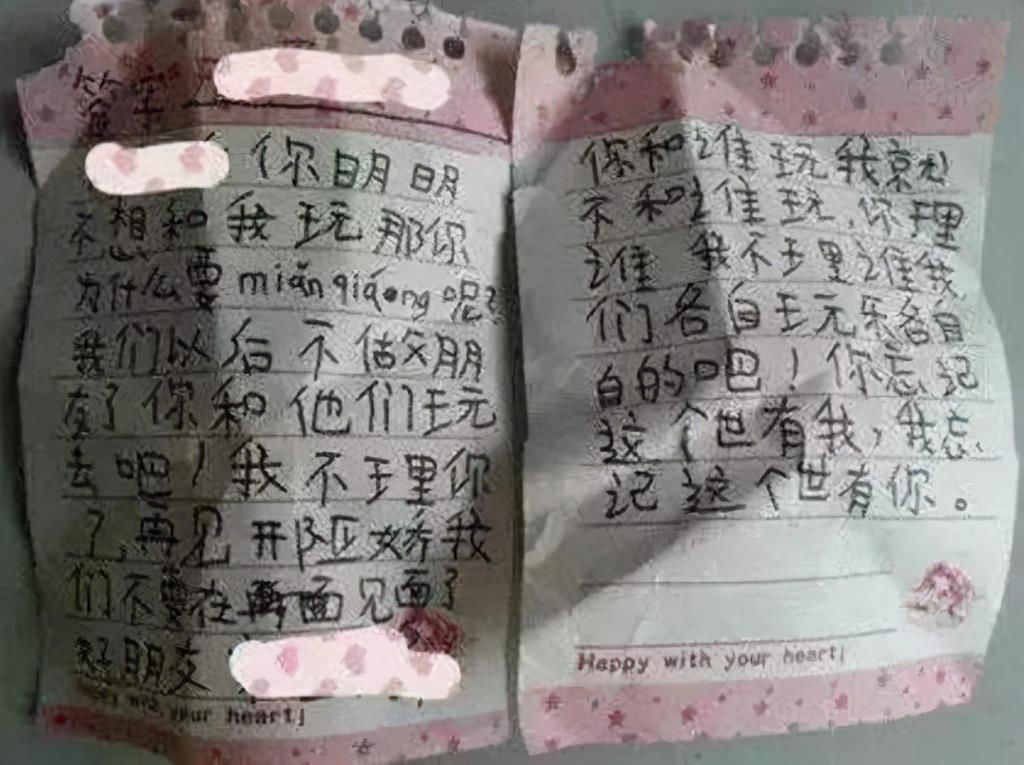 给
你明明
不想和我玩那你
为什么要 miǎn qiáng 呢?
我们以后不估交朋
友了你和他们玩
去吧!我不理你
了,再见 我
们不要在 面见面了
好朋友:
your heart!
你和谁玩我就
不和谁玩,你理
谁 我不理谁我
们各自玩 各自
白的吧!你忘记
这个世有我,我忘
记这个世有你。
Happy with your heart!